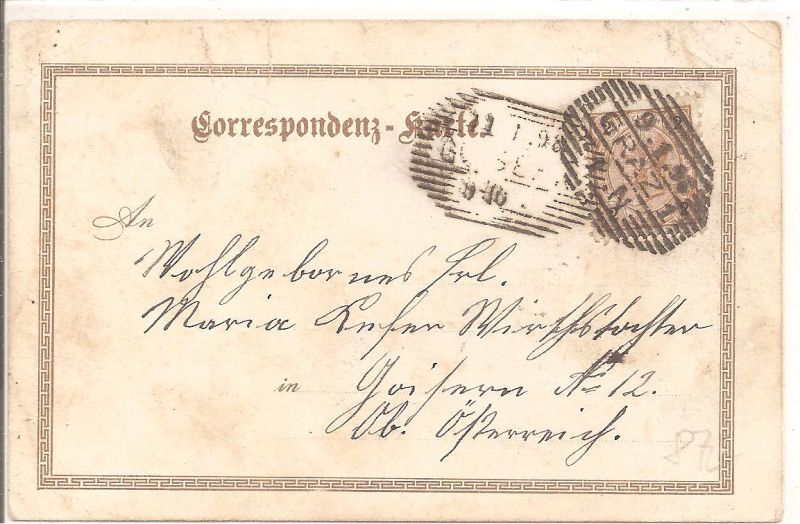 Correspondenz-Karte.
1 1. 98
9. 1. 98
GRAZ 1
An
Wohlgebornes Frl.
Maria Kefer Wirthstochter
in Goisern No 12.
Ob. Österreich.
87